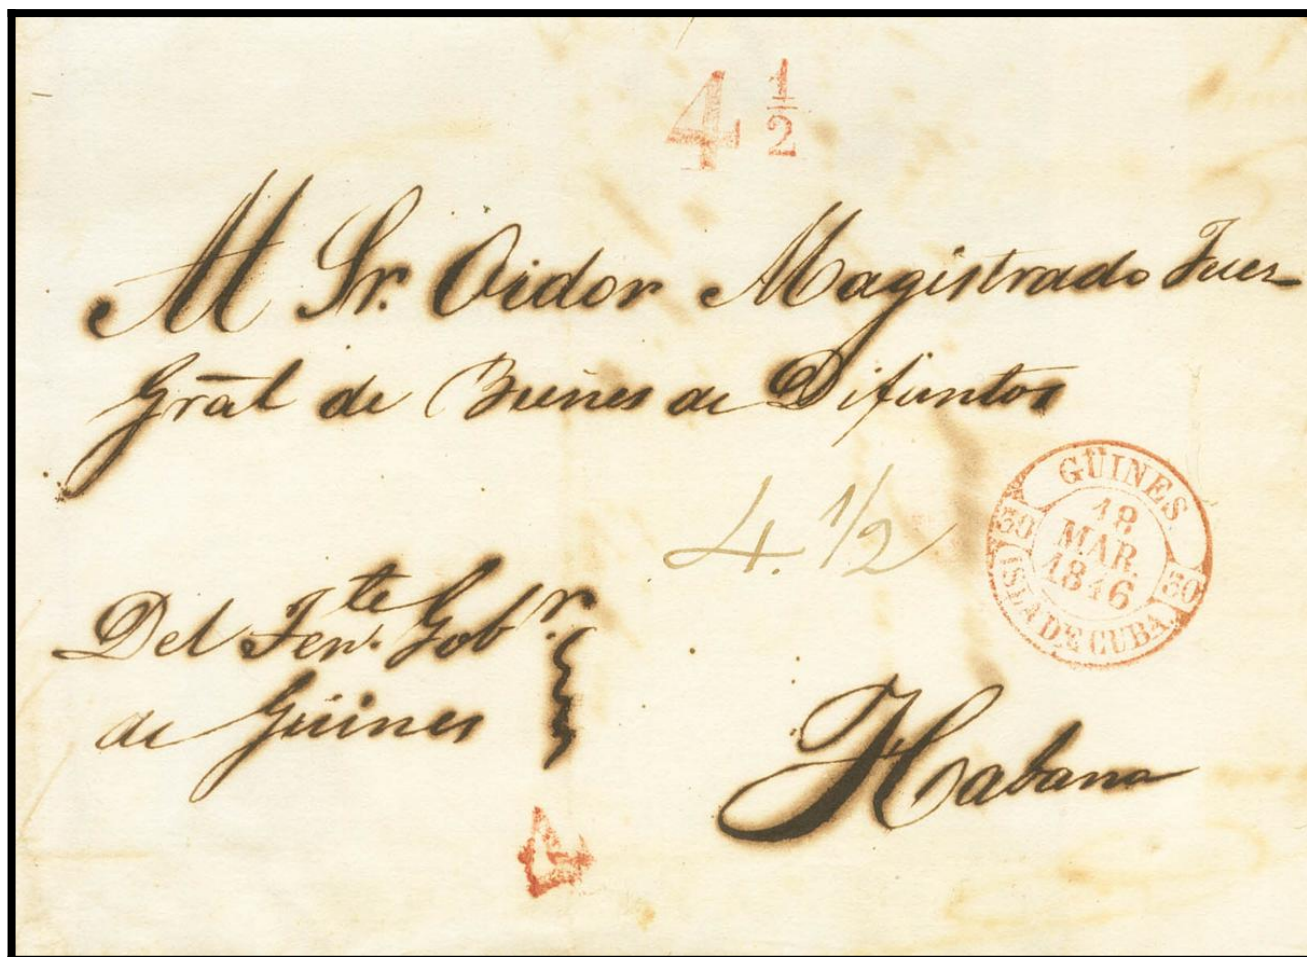 4 1/2
Al Sr. Oidor Magistrado Juez
Grāl de Bienes de Difuntos
4. 1/2
GÜINES
18
MAR
1846
30 30
ISLA DE CUBA
Del Tente. Gobr.
de Güines
Habana